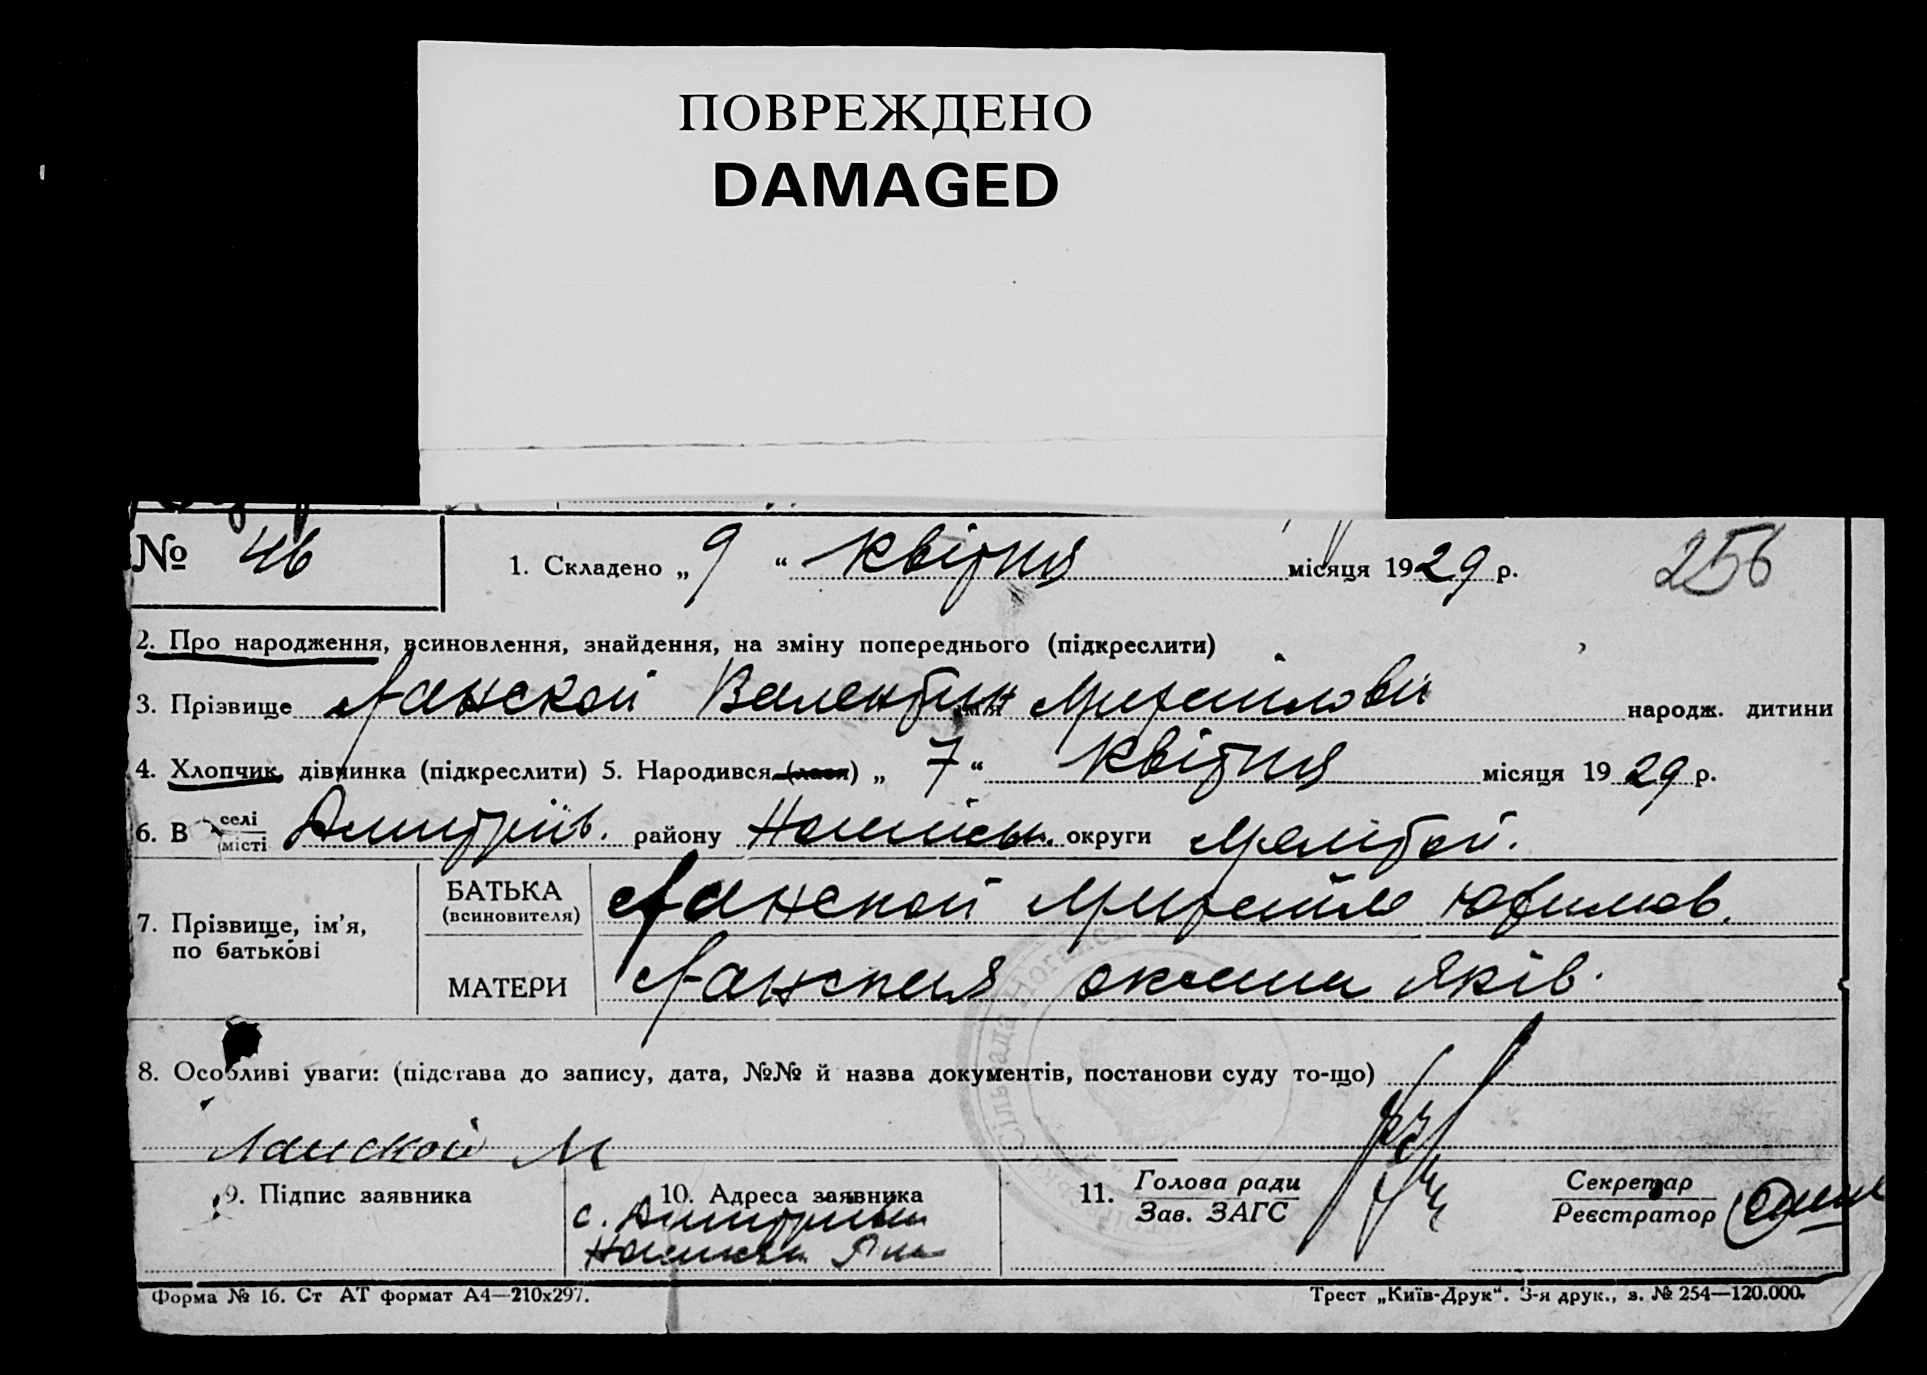 ПОВРЕЖДЕНО
DAMAGED
№ 46
1. Складено „ 9 “ Квітня місяця 1929 р.
256
2. Про народження, всиновлення, знайдення, на зміну попереднього (підкреслити)
3. Прізвище Ланской Валентин Михайлови народж. дитини
4. Хлопчик, дівчинка (підкреслити) 5. Народився (лася) „ 7 “ Квітня місяця 1929 р.
6. В селі/місті Дмитрів. району округи Меліто­й.
7. Прізвище, ім’я, по батькові
БАТЬКА (всиновителя) Ланской Михайло Юхимов.
МАТЕРИ Ланская Яків.
8. Особливі уваги: (підстава до запису, дата, №№ й назва документів, постанови суду то-що)
Ланской М
9. Підпис заявника
10. Адреса заявника
с.
11. Голова ради
Зав. ЗАГС
Секретар
Реєстратор
Форма № 16. Ст АТ формат А4—210х297.
Трест „Київ-Друк“. 3-я друк., з. № 254—120.000.